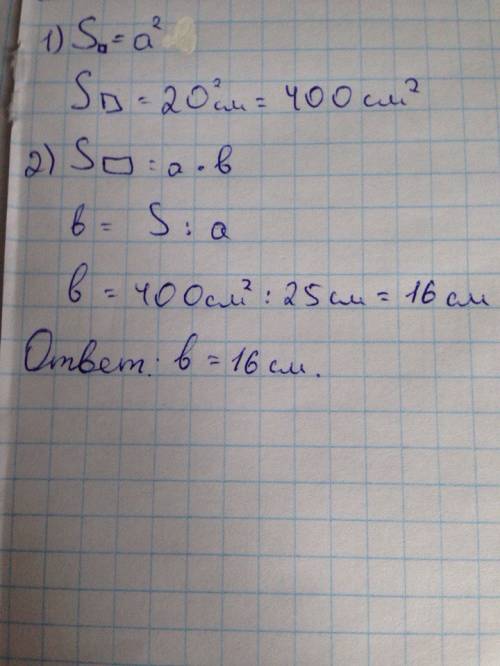 1) S□ = a²
S□ = 20²см = 400 см²
2) S▭ = a · в
в = S : a
в = 400 см² : 25 см = 16 см
Ответ: в = 16 см.